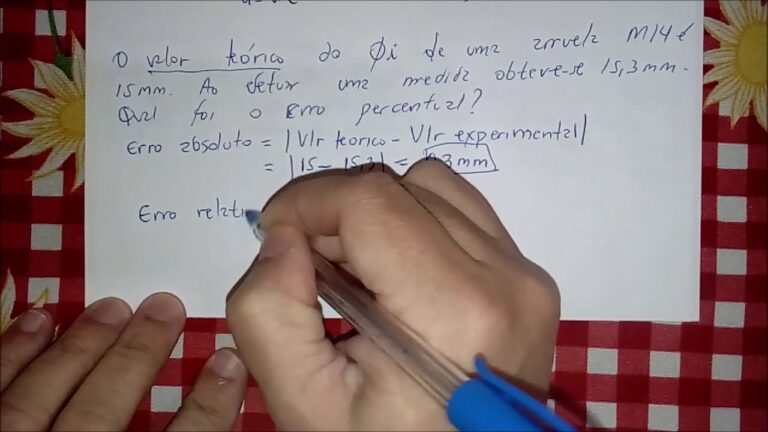 O valor teórico do Φi de uma arruela M14 é
15mm. Ao efetuar uma medida obteve-se 15,3mm.
Qual foi o erro percentual?
Erro absoluto = |Vlr teórico - Vlr experimental|
= |15 - 15,3| = 3mm
Erro relati